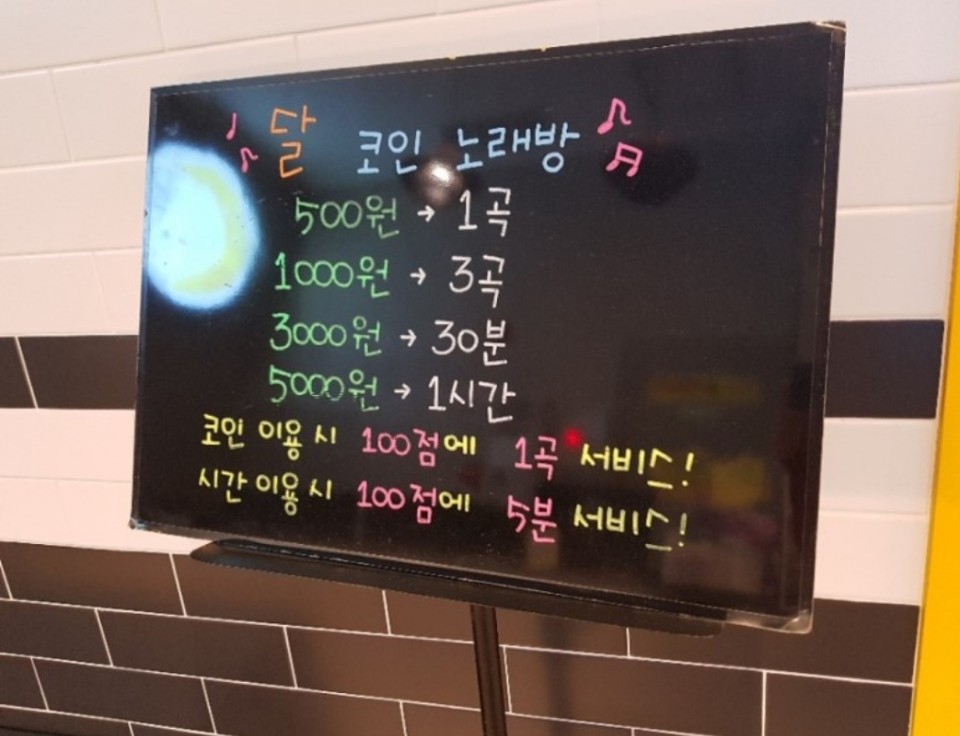 달 코인 노래방
500원 → 1곡
1000원 → 3곡
3000원 → 30분
5000원 → 1시간
코인 이용시 100점에 1곡 서비스!
시간 이용시 100점에 5분 서비스!